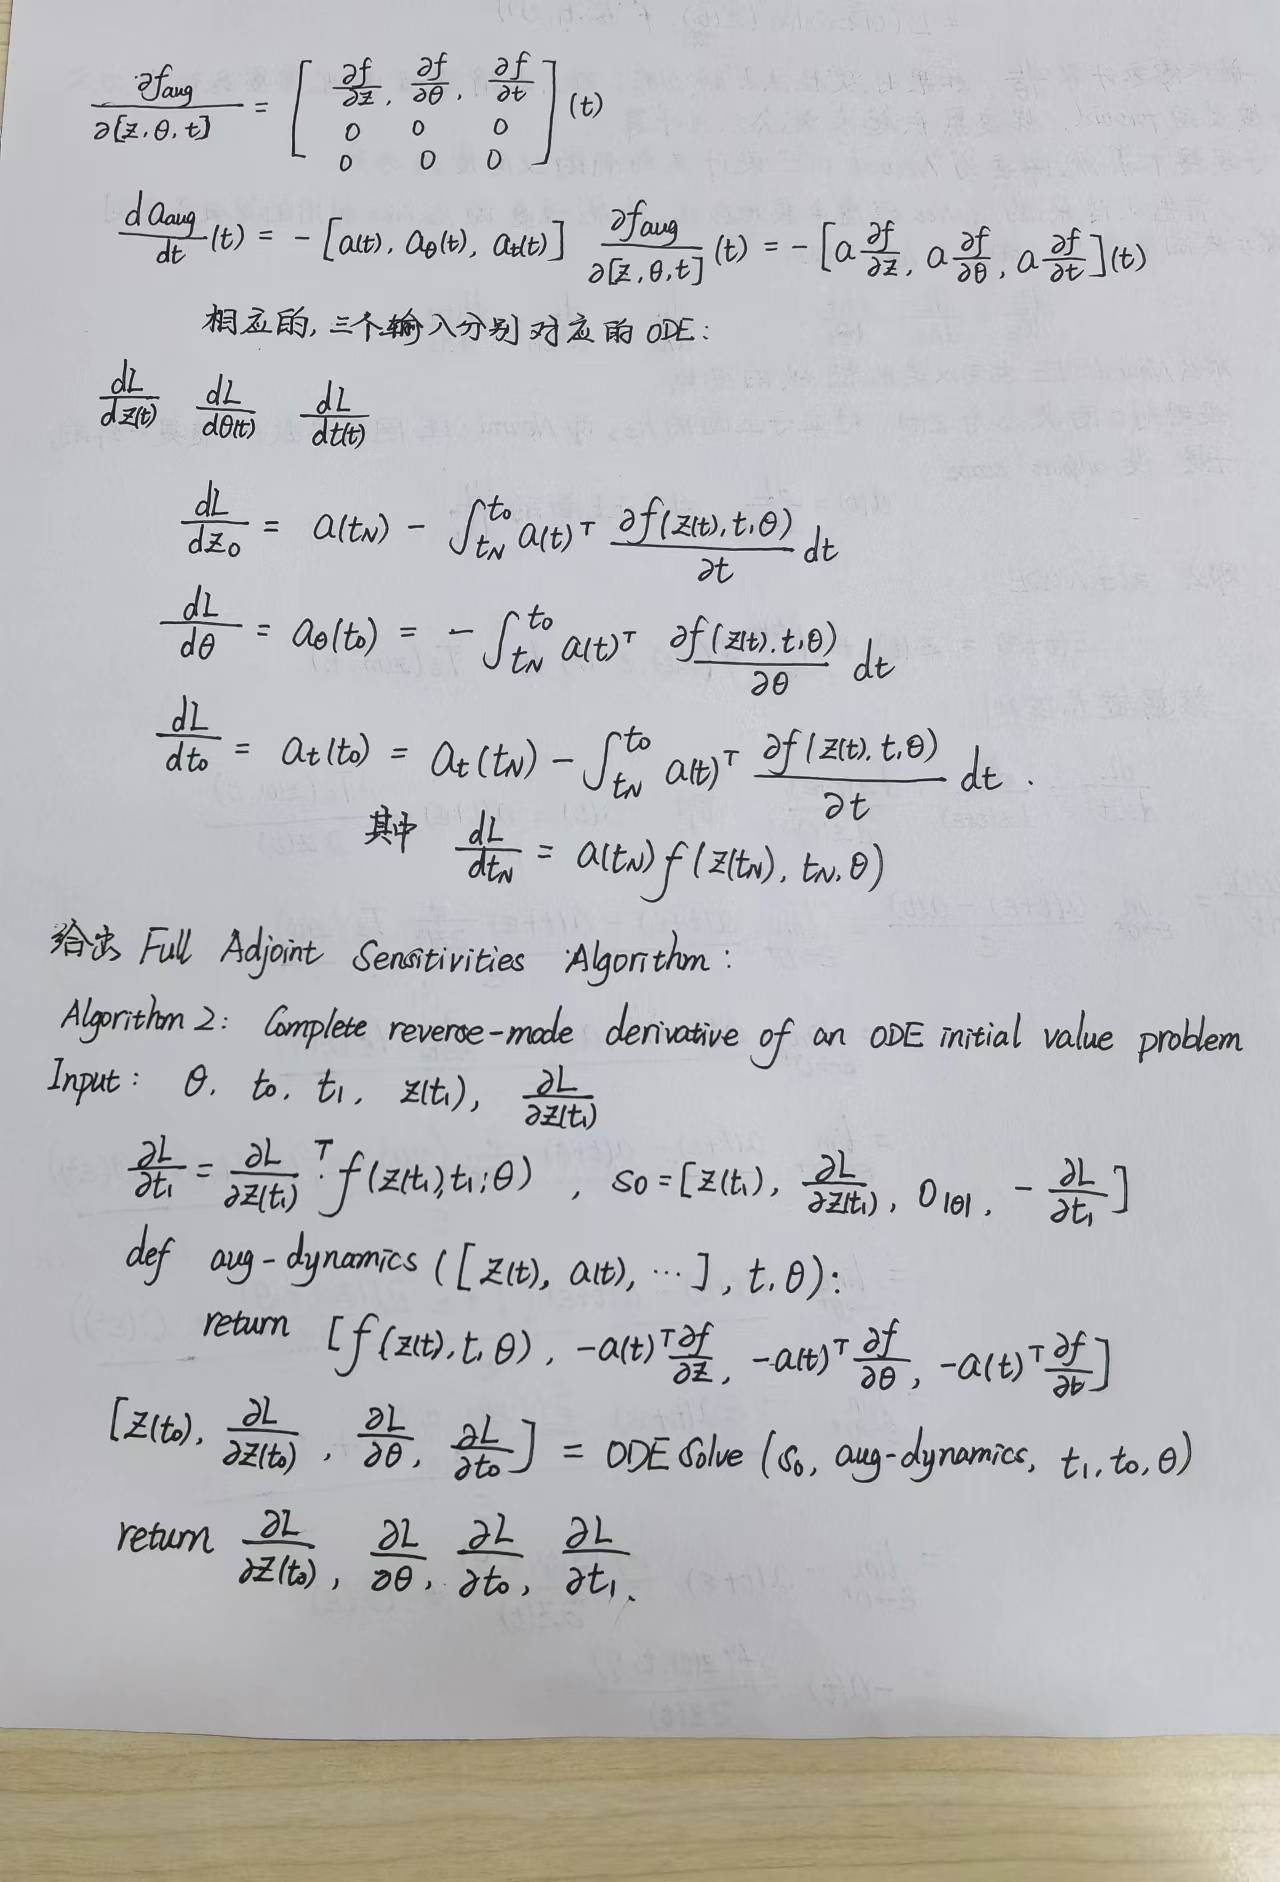 ∂f_aug / ∂[z, θ, t] = [ ∂f/∂z, ∂f/∂θ, ∂f/∂t ; 0 0 0 ; 0 0 0 ] (t)
d a_aug/dt (t) = - [a(t), a_θ(t), a_t(t)] ∂f_aug/∂[z, θ, t] (t) = - [a ∂f/∂z, a ∂f/∂θ, a ∂f/∂t](t)
相应的, 三个输入分别对应的 ODE:
dL/dz(t) dL/dθ(t) dL/dt(t)
dL/dz₀ = a(t_N) - ∫_{t_N}^{t₀} a(t)ᵀ ∂f(z(t), t, θ)/∂t dt
dL/dθ = a_θ(t₀) = - ∫_{t_N}^{t₀} a(t)ᵀ ∂f(z(t), t, θ)/∂θ dt
dL/dt₀ = a_t(t₀) = a_t(t_N) - ∫_{t_N}^{t₀} a(t)ᵀ ∂f(z(t), t, θ)/∂t dt .
其中 dL/dt_N = a(t_N) f(z(t_N), t_N, θ)
给出 Full Adjoint Sensitivities Algorithm:
Algorithm 2: Complete reverse-mode derivative of an ODE initial value problem
Input: θ, t₀, t₁, z(t₁), ∂L/∂z(t₁)
∂L/∂t₁ = ∂L/∂z(t₁)ᵀ · f(z(t₁), t₁; θ) , s₀ = [z(t₁), ∂L/∂z(t₁), 0_|θ|, - ∂L/∂t₁]
def aug-dynamics ([z(t), a(t), ⋯], t, θ):
return [f(z(t), t, θ), -a(t)ᵀ ∂f/∂z, -a(t)ᵀ ∂f/∂θ, -a(t)ᵀ ∂f/∂t]
[z(t₀), ∂L/∂z(t₀), ∂L/∂θ, ∂L/∂t₀] = ODE Solve (s₀, aug-dynamics, t₁, t₀, θ)
return ∂L/∂z(t₀), ∂L/∂θ, ∂L/∂t₀, ∂L/∂t₁.